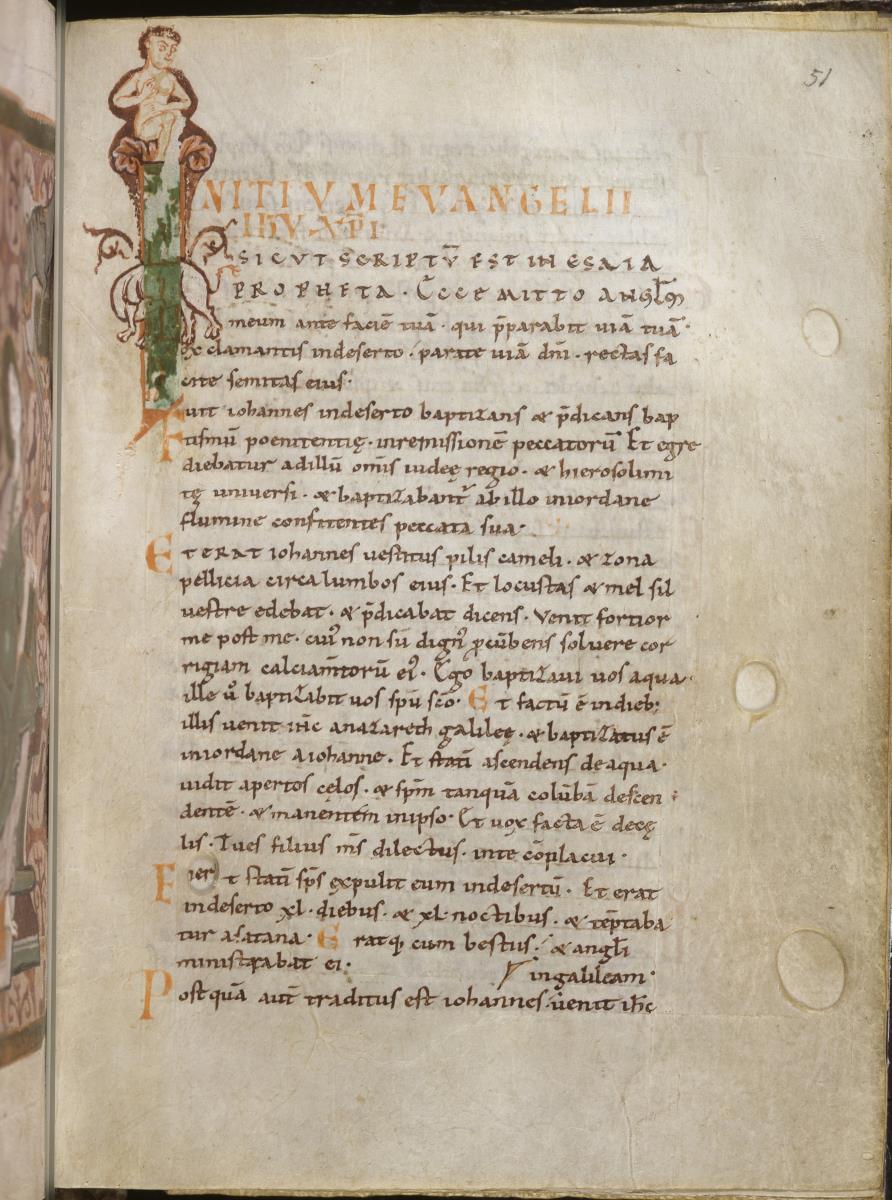 51
INITIVM EVANGELII
IHV XP̄I
SICVT SCRIPTV̄ EST IN ESAIA
PROPHETA · Ecce MITTO ANGL̄M
meum ante faciē tuā · qui p̄parabit uiā tuā ·
clamantis indeserto · parate uiā dn̄i · rectas fa
cite semitas eius ·
Fuit iohannes indeserto baptizans & p̄dicans bap
tismū poenitentię · inremissionē peccatorū Et egre
diebatur adillū om̄is iudeę regio · & hierosolimi
tę uniuersi · & baptizabant᷑ abillo iniordane
flumine confitentes peccata sua ·
ET ERAT iohannes uestitus pilis cameli · & zona
pellicia circa lumbos eius · Et locustas & mel sil
uestre edebat · & p̄dicabat dicens · Venit fortior
me post me · cui᾽ non sū dign᾽ ꝓcūbens soluere cor
rigiam calciam̄torū ei᾽ · Ego baptizaui uos aqua ·
ille ū baptizabit uos sp̄u sc̄o · Et factū ē indieb;
illis uenit ih̄c anazareth galileę · & baptizatus ē
iniordane aiohanne · Et statī ascendens deaqua ·
uidit apertos cęlos · & sp̄m tanquā colūbā descen
dentē · & manentem inipso · Et uox facta ē decę
lis · Tu es filius m̄s dilectus · inte cōplacui ·
Et statī sp̄s expulit eum indesertū · Et erat
indeserto xl · diebus · & xl · noctibus · & tēptaba
tur asatana · Eratq; cum bestiis · & angl̄i
ministrabat ei · ingalileam ·
Postquā aut̄ traditus est iohannes · uenit ih̄c